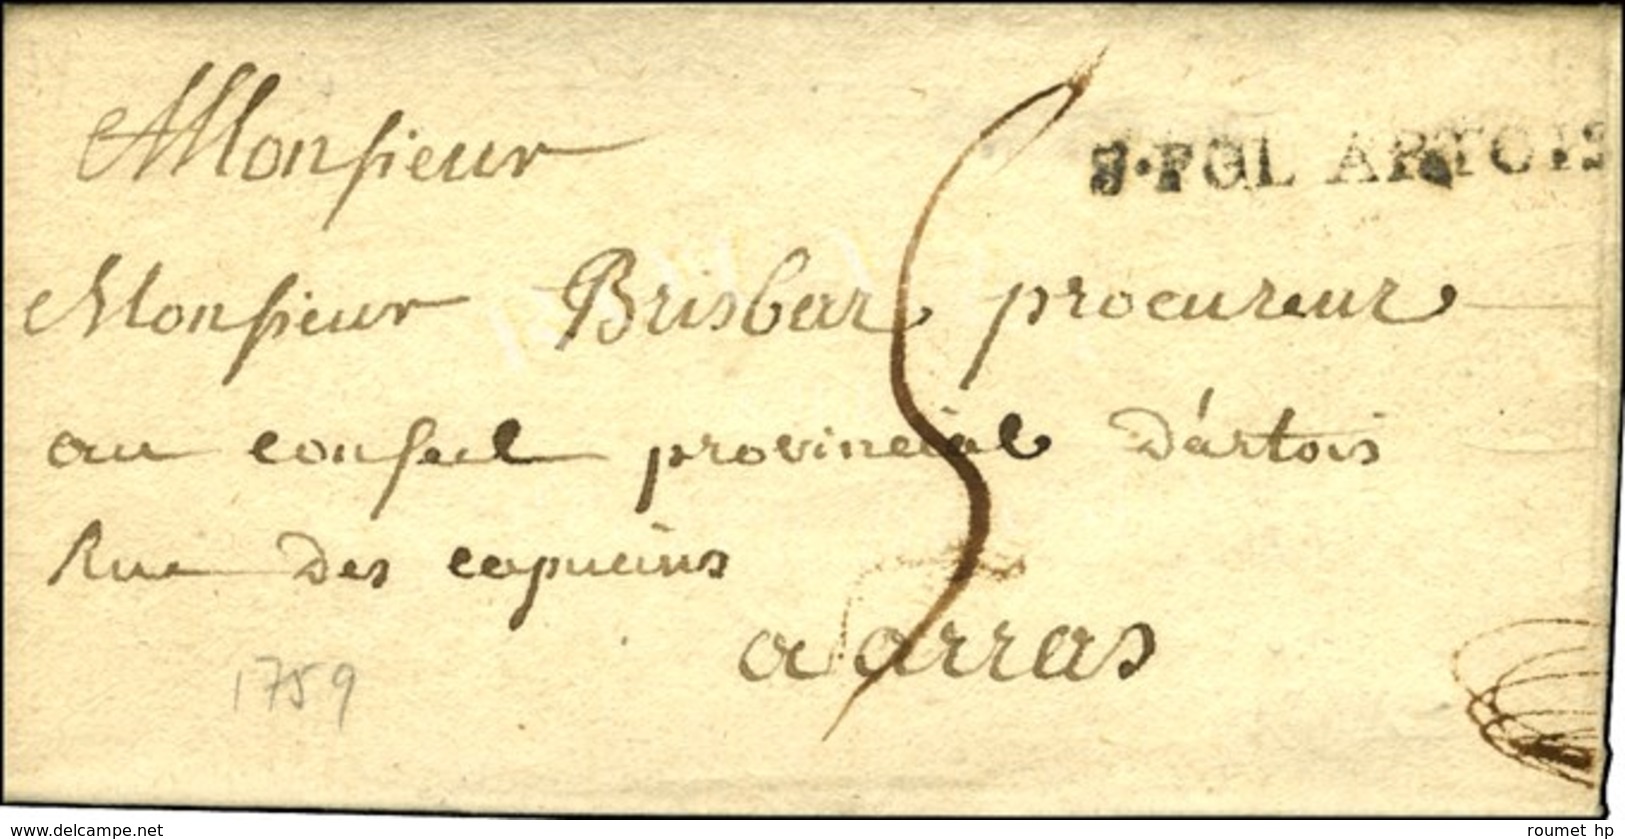 Monsieur
S.POL ARTOIS
Monsieur Brisbar procureur
au conseil provincial D'artois
Rue Des capucins
a arras
5
1759
www.delcampe.net
roumet hp